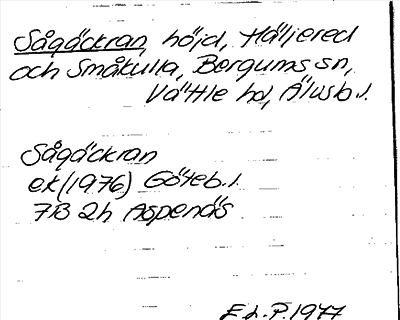 Sågäckran, höjd, Häljered
och Småkulla, Bergums sn,
Vättle hd, Älvsb l.
Sågäckran
ek (1976) Göteb. l.
7B 2h Aspenäs
E L. P. 1977